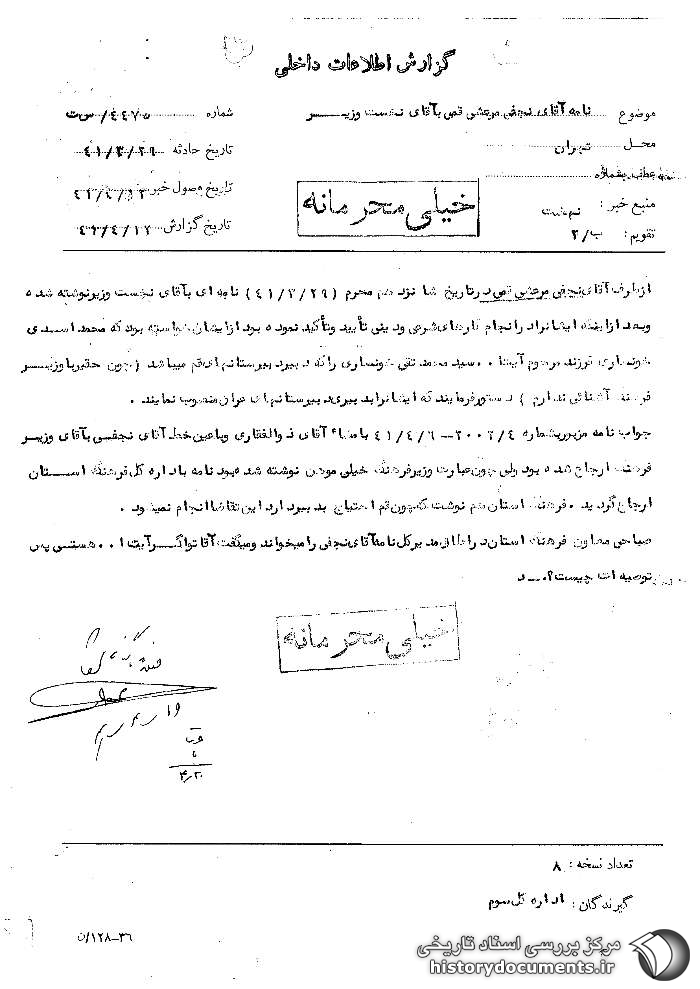 گزارش اطلاعات داخلی
موضوع نامه آقای نجفی مرعشی قمی بآقای نخست وزیـــر
شماره ۴۴۷۵/س ت
محـل تهران
تاریخ حادثه ۴۱/۳/۲۹
عطف بشماره
تاریخ وصول خبر
منبع خبر :
خیلی محرمانه
تقویم : ب/۲
تاریخ گزارش
ازطرف آقای نجفی مرعشی قمی درتاریخ شانزدهم محرم (۴۱/۳/۲۹) نامه ای بآقای نخست وزیرنوشته شده
وبعد ازاینکه ایشانرادرانجام کارهای شرعی ودینی تأیید وتأکید نموده بود ازایشان خواسته بود که محمد اســدی
خونساری فرزند مرحوم آیت ا . . سید محمد تقی خونساری راکه دبیر دبیرستانهای قم میباشد (چون حقیرباوزیــر
فرهنگ آشنائی ندارم ) دستورفرمایند که ایشانرابدبیری دبیرستانهای تهران منصوب نمایند .
جواب نامه مزبوربشماره ۲۰۰۲/۴ – ۴۱/۴/۶ بامضاء آقای ذوالفقاری وباعین خط آقای نجفـی بآقای وزیـر
فرهنگ ارجاع شده بود ولی چون عبارت وزیرفرهنگ خیلی موهن نوشته شده بود نامه باداره کل فرهنگ اســـتان
ارجاع گردید . فرهنگ استان هم نوشت که چون قم احتیاج به دبیردارد این تقاضا انجام نمیشود .
صباحی معاون فرهنگ استان دراطاق مدیرکل نامه آقای نجفی رامیخواند ومیگفت آقاتواگــرآیت ا . . هستـی پس
توصیه ات چیست؟
خیلی محرمانه
تعداد نسخه : ۸
گیرندگان : اداره کل سوم
۳۶–۱۲۸/ن
مرکز بررسی اسناد تاریخی
historydocuments.ir